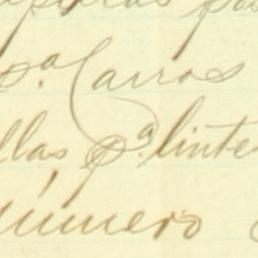 pª Carros
llas, pª linte
número